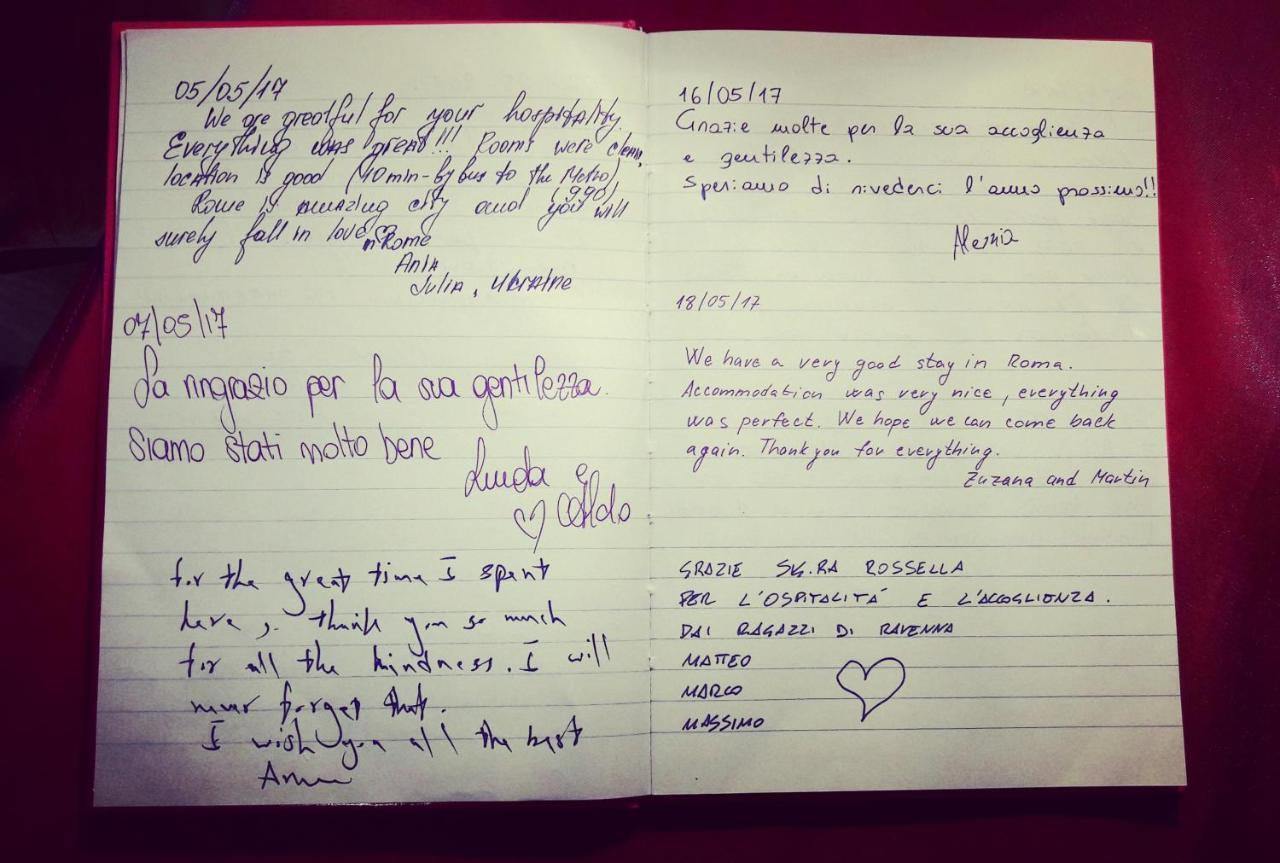 05/05/17
We are greatful for your hospitality.
Everything was great!!! Rooms were clean,
location is good (10min-by bus to the Metro)
(990)
Rome is amazing city and you will
surely fall in love ♡
in Rome
Ania
Julia, Ukraine
07/05/17
La ringrazio per la sua gentilezza.
Siamo stati molto bene
e
♡ Aldo
for the great time I spent
here, thank you so much
for all the kindness. I will
never forget that.
I wish you all the best
16/05/17
Grazie molte per la sua accoglienza
e gentilezza.
Speriamo di rivederci l'anno prossimo!!
Alessia
18/05/17
We have a very good stay in Roma.
Accommodation was very nice, everything
was perfect. We hope we can come back
again. Thank you for everything.
Zuzana and Martin
GRAZIE SIG.RA ROSSELLA
PER L'OSPITALITÁ E L'ACCOGLIENZA.
DAI RAGAZZI DI RAVENNA
MATTEO
MARCO
MASSIMO